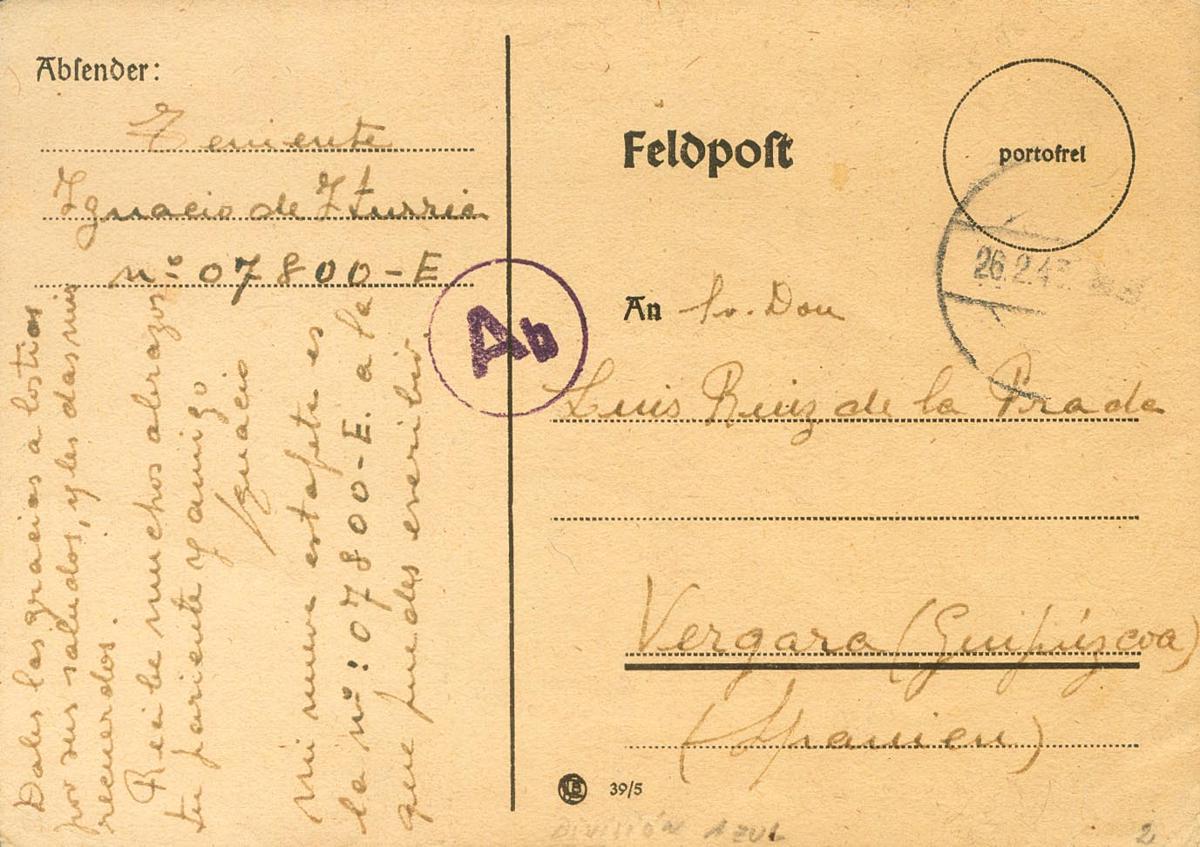 Absender:
Teniente
Ignacio de Yturria
nº 07800-E
Feldpost
portofrei
26.2.43
An Sr. Don
Luis Ruiz de la Prada
Vergara (Guipúzcoa)
(Spanien)
39/5
Ab
Dales las gracias a los tios
por sus saludos, y les das mis
recuerdos.
Recibe muchos abrazos
tu pariente y amigo
Ignacio
mi nueva estafeta es
la nº: 07800-E. a la
que puedes escribir.
DIVISIÓN AZUL
2